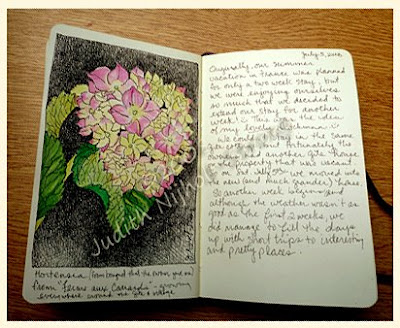 Hortensia (from bouquet that the owner gave us)
from "ferme aux Canards" - growing
everywhere around
July 3, 2016
Originally, our summer
vacation in France was planned
for only a two week stay, but
we were enjoying ourselves
so much that we decided to
extend our stay for another
week! This was the idea
of my
We couldn't stay in the same
but fortunately the
owners had another gite / house
on the property that was vacant
so Sat. July 2nd we moved into
the new (and much grander) house.
So another week
although the weather wasn't as
good as the first 2 weeks, we
did manage to fill the days
up with short trips to interesting
and pretty places.
Judith